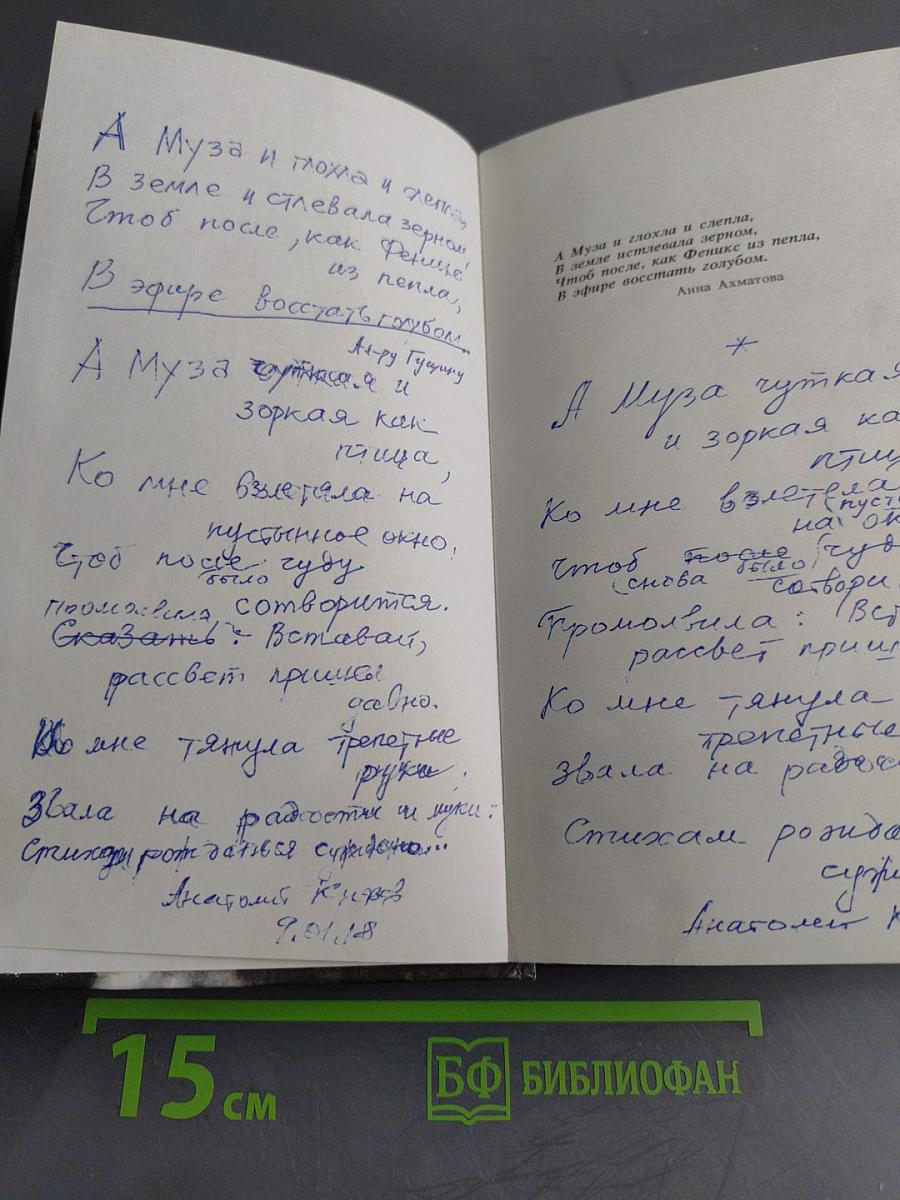 А Муза и глохла и слепла,
В земле истлевала зерном,
Чтоб после, как Феникс
из пепла,
В эфире восстать голубом.
Ал-ру Гущину
А Муза чуткая и
зоркая как
птица,
Ко мне взлетала на
пустынное окно,
Чтоб после чуду
было
сотворится.
Промолвила
Сказать: Вставай,
рассвет пришёл
давно.
Ко мне тянула трепетные
руки.
Звала на радости и муки:
Стихам рождаться суждено...
Анатолий
9.01.18
А Муза и глохла и слепла,
В земле истлевала зерном,
Чтоб после, как Феникс из пепла,
В эфире восстать голубом.
Анна Ахматова
*
А Муза чуткая
и зоркая ка
птиц
Ко мне взлетала
(пуст
на ок
Чтоб после чуд
снова было
сотвори
Промолвила: Вст
рассвет приш
Ко мне тянула
трепетные
Звала на радос
Стихам рожда
суж
Анатолий К
15 см
БФ БИБЛИОФАН